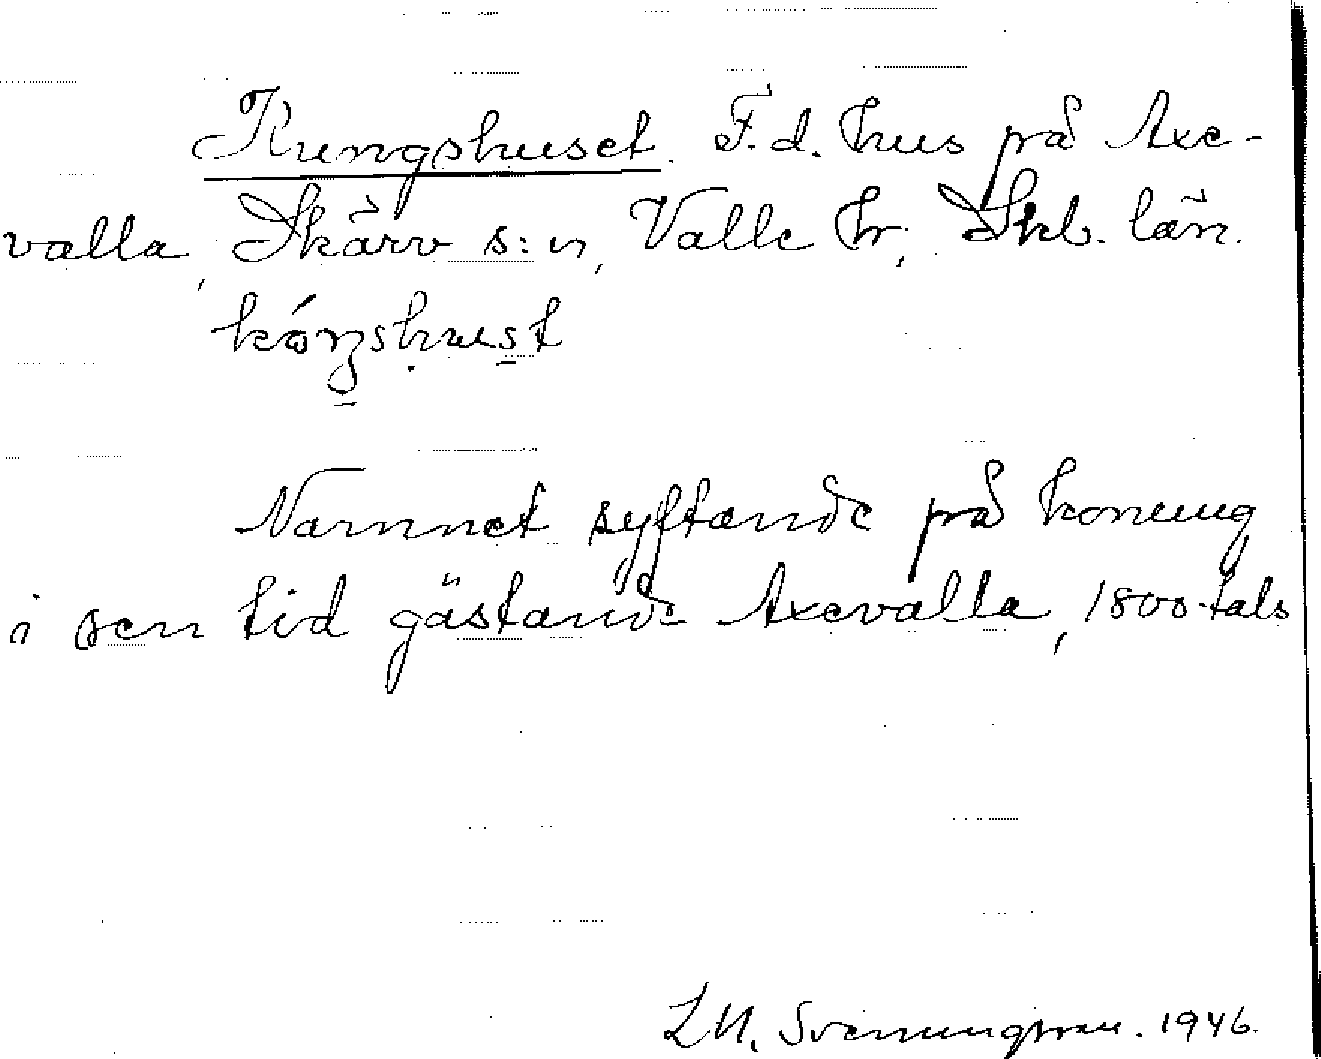 Kungshuset. F.d. hus på Axe-
valla, Skärv s:n, Valle hr, Skb. län.
kóŋshust
Namnet syftande på konung
i sen tid gästande Axevalla, 1800-tals
L M. Svenungsson. 1946.